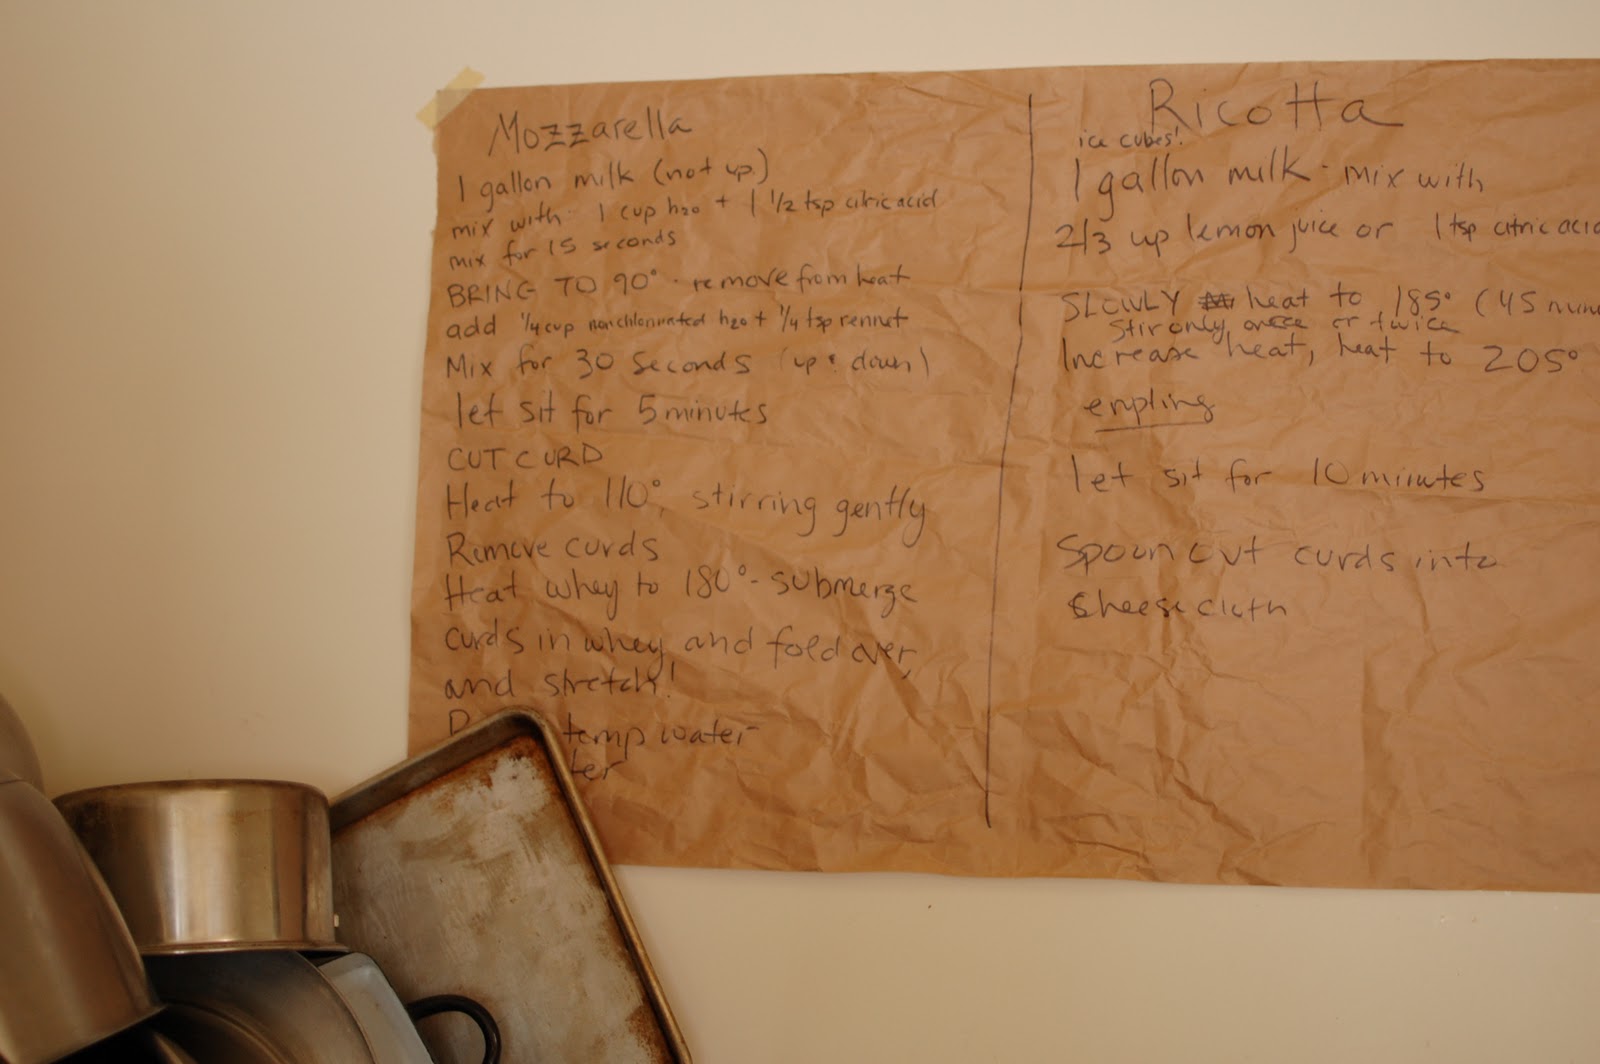 Mozzarella
1 gallon milk (not up.)
mix with 1 cup h2o + 1 1/2 tsp citric acid
mix for 15 seconds
BRING TO 90° - remove from heat
add 1/4 cup nonchlorinated h2o + 1/4 tsp rennet
Mix for 30 seconds (up & down)
let sit for 5 minutes
CUT CURD
Heat to 110°, stirring gently
Remove curds
Heat whey to 180° - submerge
curds in whey and fold over,
and stretch!
temp water
Ricotta
ice cubes!
1 gallon milk - mix with
2/3 up lemon juice or 1 tsp citric acid
SLOWLY heat to 185° (45
Stir only once or twice
Increase heat, heat to 205°
let sit for 10 minutes
Spoon out curds into
cheese cloth